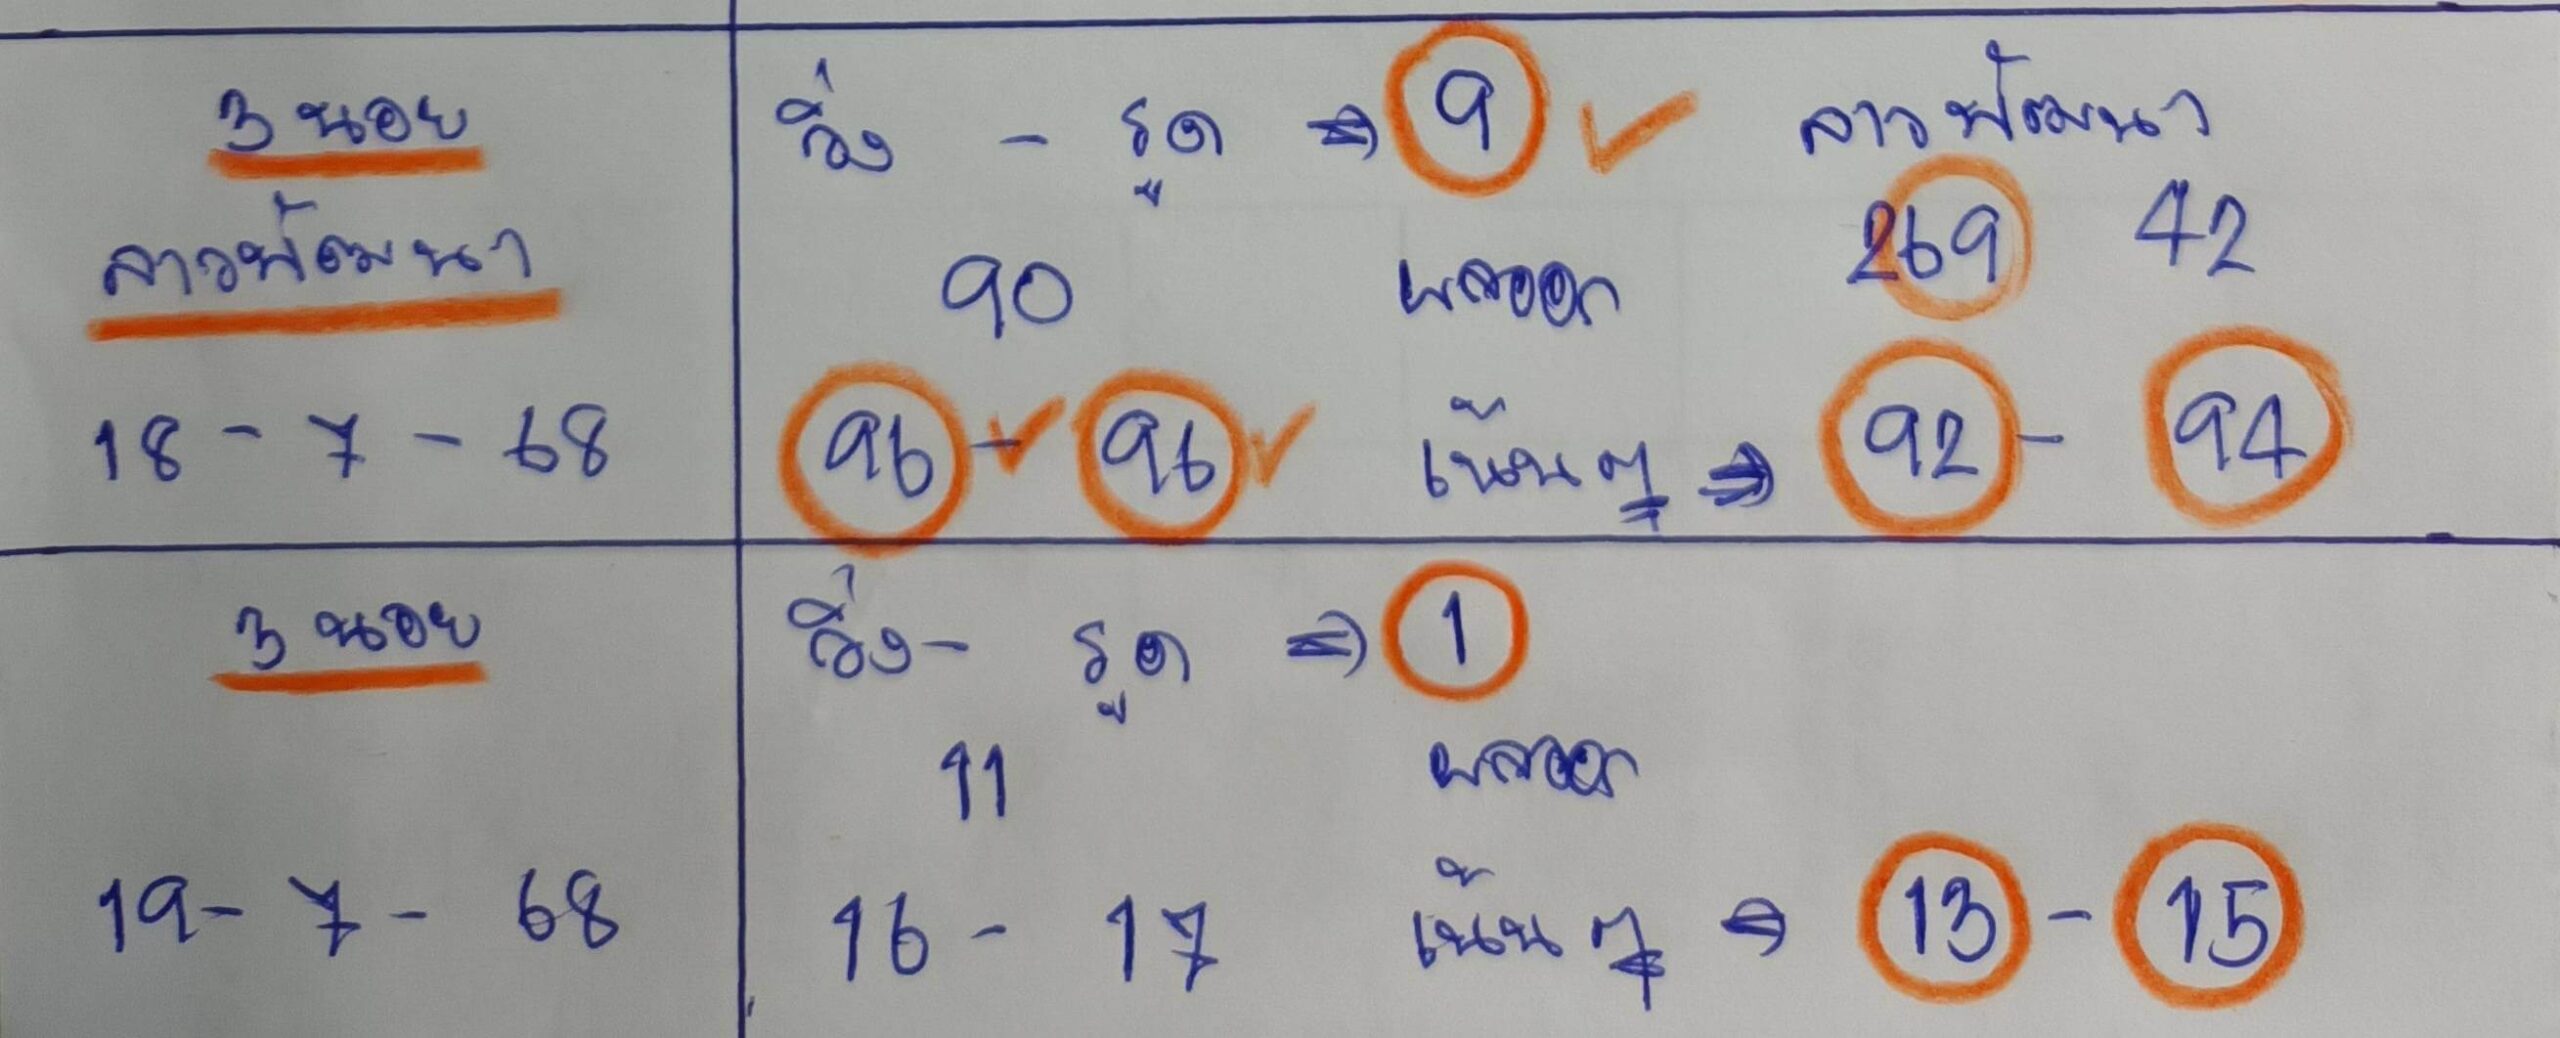 3 นอย
ลาวพัฒนา
18 - 7 - 68
วิ่ง - รูด ⇒ 9 ✓ ลาวพัฒนา
90 ผลออก 269 42
96 - ✓ 96 ✓ เน้นๆ ⇒ 92 - 94
3 นอย
19 - 7 - 68
วิ่ง - รูด ⇒ 1
11 ผลออก
16 - 17 เน้นๆ ⇒ 13 - 15